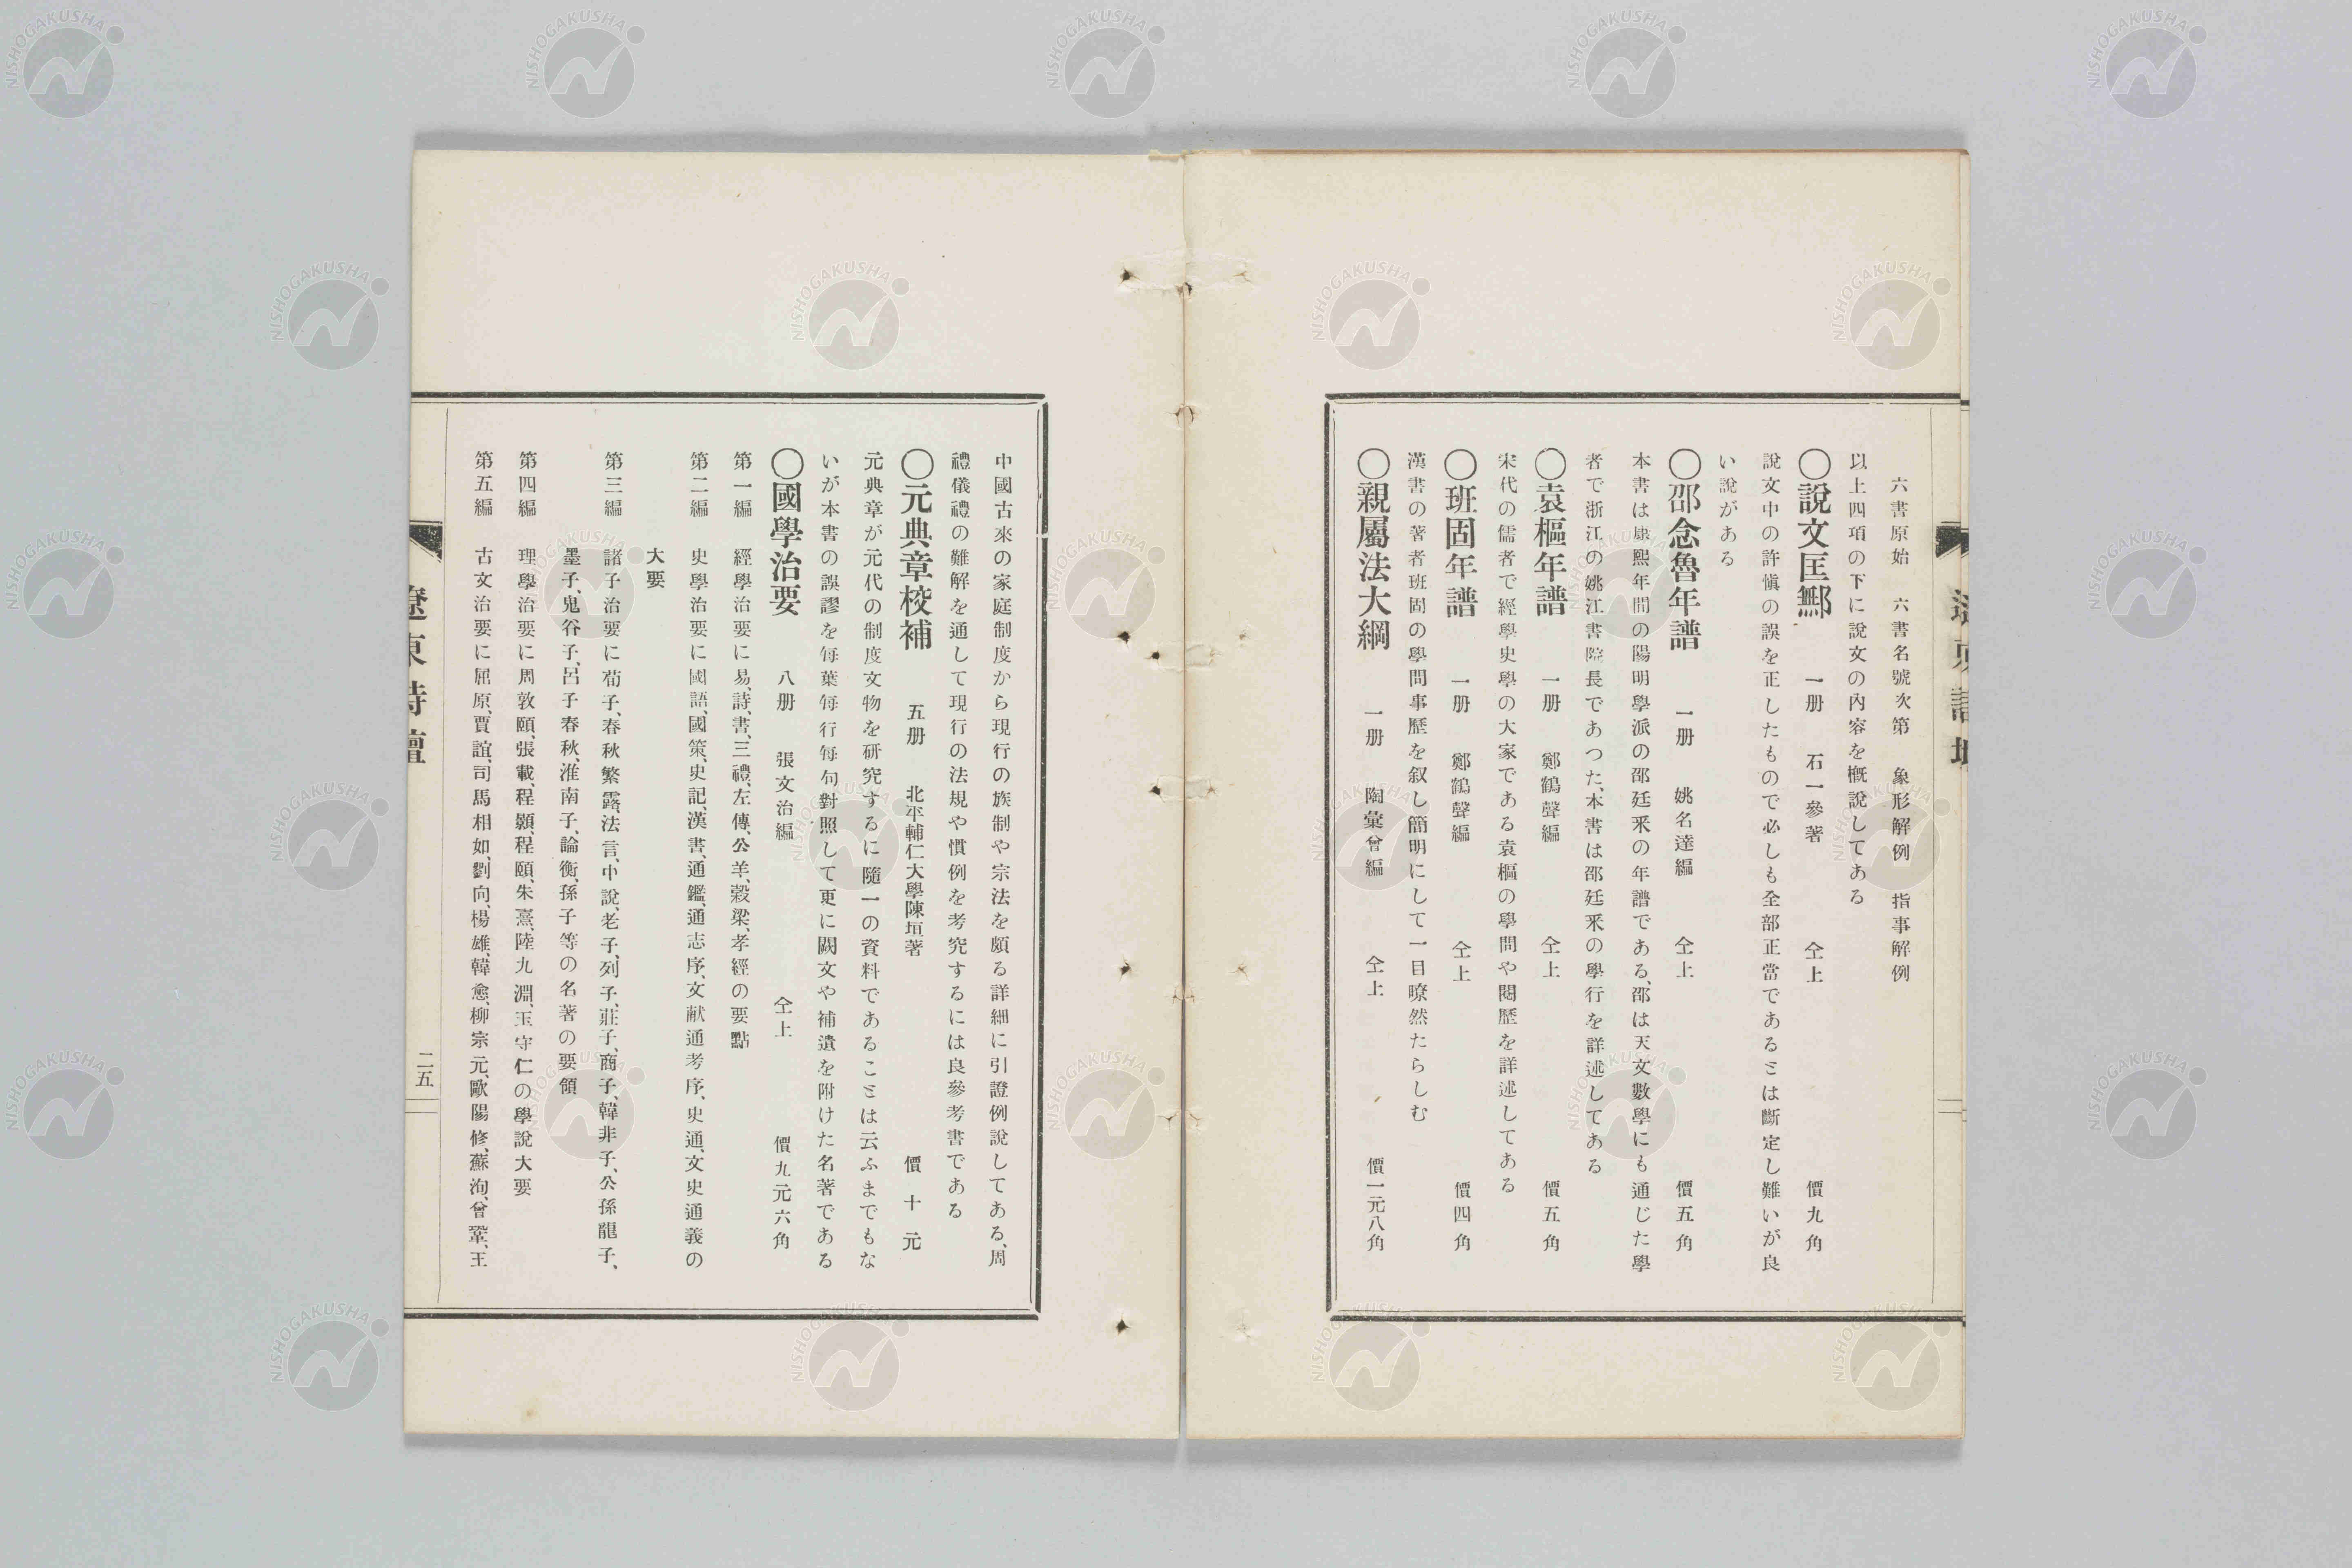 六書原始　六書名號次第　象形解例　指事解例
以上四項の下に說文の內容を槪說してある
〇說文匡鄦　一册　石一參著　仝上　價九角
說文中の許愼の誤を正したもので必しも全部正當であるとは斷定し難いが良
い說がある
〇邵念魯年譜　一册　姚名達編　仝上　價五角
本書は康熙年間の陽明學派の邵廷釆の年譜である、邵は天文數學にも通じた學
者で浙江の姚江書院長であつた、本書は邵廷釆の學行を詳述してある
〇袁樞年譜　一册　鄭鶴聲編　仝上　價五角
宋代の儒者で經學史學の大家である袁樞の學問や閱歷を詳述してある
〇班固年譜　一册　鄭鶴聲編　仝上　價四角
漢書の著者班固の學問事歷を叙し簡明にして一目瞭然たらしむ
〇親屬法大綱　一册　陶彙曾編　仝上　價一元八角
中國古來の家庭制度から現行の族制や宗法を頗る詳細に引證例說してある、周
禮儀禮の難解を通して現行の法規や慣例を考究するには良參考書である
〇元典章校補　五册　北平輔仁大學陳垣著　價十元
元典章が元代の制度文物を研究するに隨一の資料であることは云ふまでもな
いが本書の誤謬を每葉每行每句對照して更に闕文や補遺を附けた名著である
〇國學治要　八册　張文治編　仝上　價九元六角
第一編　經學治要に易、詩、書、三禮、左傳、公羊、穀梁、孝經の要點
第二編　史學治要に國語、國策、史記、漢書、通鑑、通志序、文献通考序、史通、文史通義の
大要
第三編　諸子治要に荀子、春秋繁露、法言、中說、老子、列子、莊子、商子、韓非子、公孫龍子、
墨子、鬼谷子、呂子春秋、淮南子、論衡、孫子等の名著の要領
第四編　理學治要に周敦頤、張載、程顥、程頤、朱熹、陸九淵、王守仁の學說大要
第五編　古文治要に屈原、賈誼、司馬相如、劉向、楊雄、韓愈、柳宗元、歐陽修、蘇洵、曾鞏、王
遼東詩壇
二五